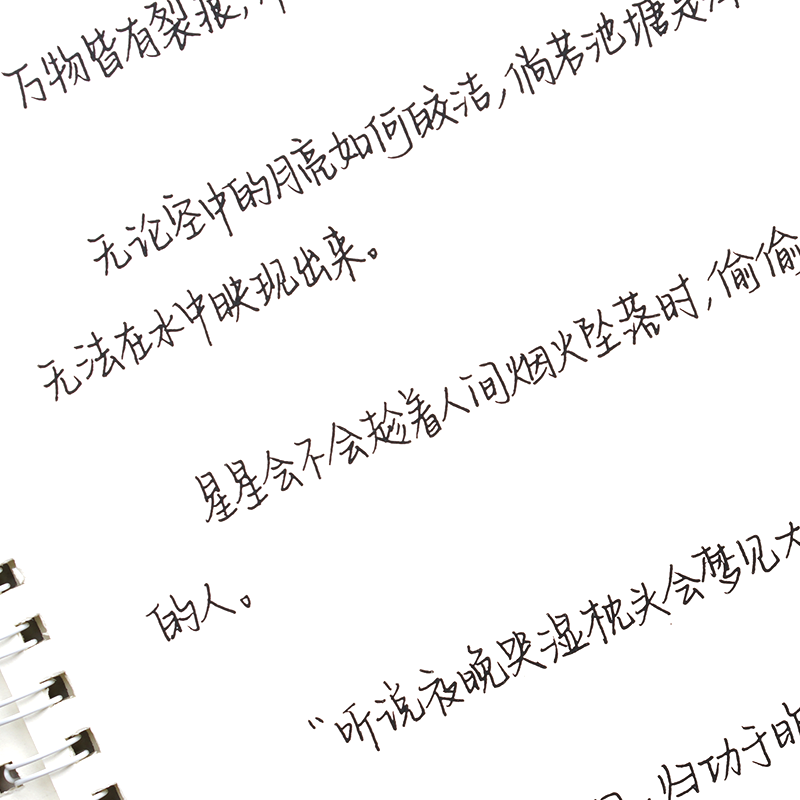 万物皆有裂痕,
无论空中的月亮如何皎洁,倘若池塘是
无法在水中映现出来。
星星会不会趁着人间烟火坠落时,偷偷
的人。
“听说夜晚哭湿枕头会梦见大
归功于昨